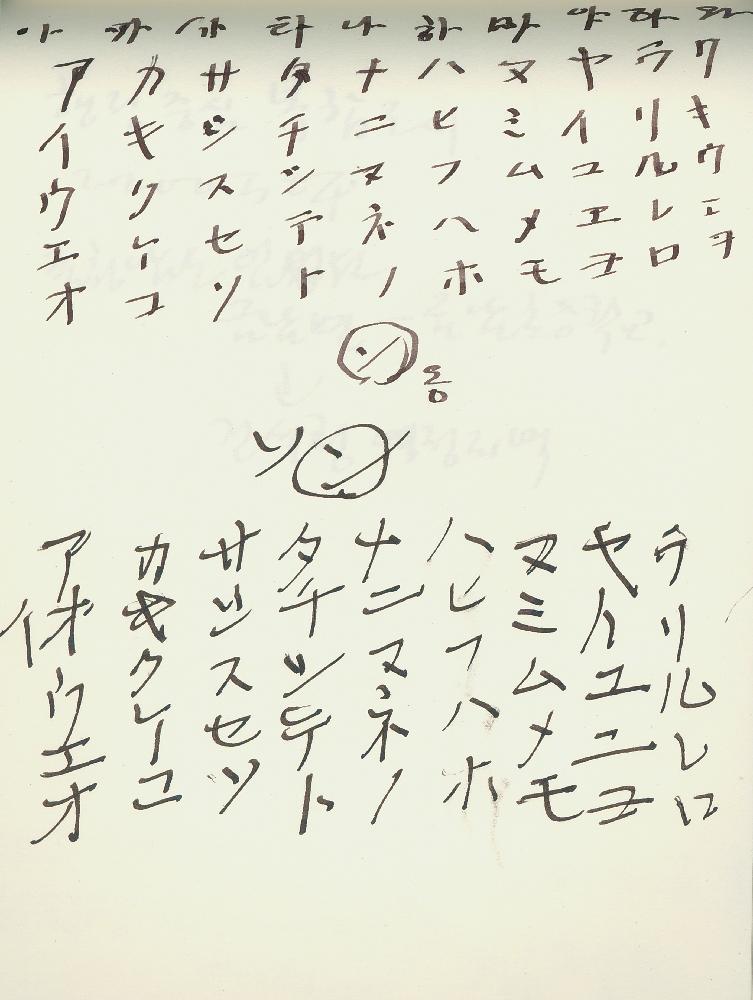 아 까 사 타 나 하 마 야 라 와
ア カ サ タ ナ ハ マ ヤ ラ ワ
イ キ シ チ ニ ヒ ミ イ リ キ
ウ ク ス ツ ヌ フ ム ユ ル ウ
エ ケ セ テ ネ ヘ メ エ レ エ
オ コ ソ ト ノ ホ モ ヨ ロ ヲ
ン 응
ソ ン
ア カ サ タ ナ ハ マ ヤ ラ
イ オ キ シ チ ニ ヒ ミ イ リ
ウ ク ス ツ ヌ フ ム ユ ル
エ ケ セ テ ネ ヘ メ エ レ
オ コ ソ ト ノ ホ モ ヨ ロ